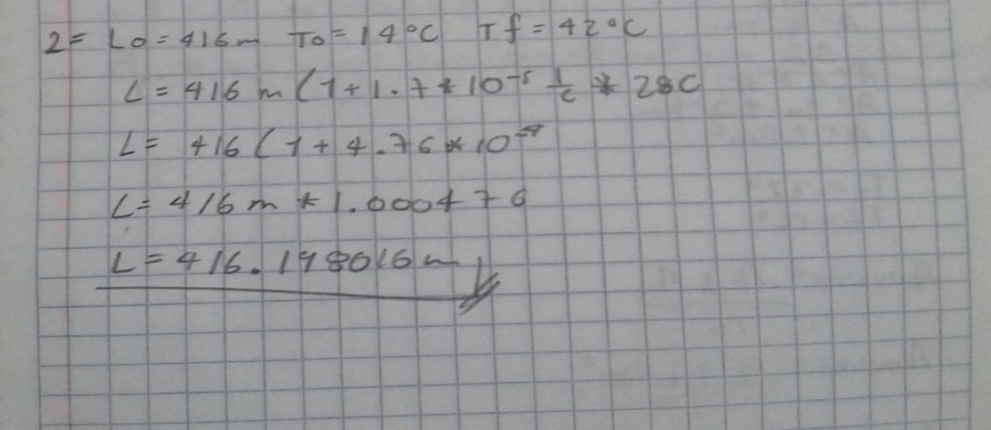 2= Lo=416m To=14°C Tf=42°C
L=416m(1+1.7*10⁻⁵ 1/c * 28C
L= 416(1+4.76*10⁻⁴
L=416m*1.000476
L=416.198016m